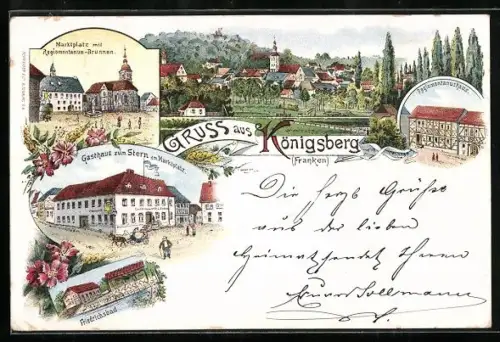 Marktplatz mit
Regiomontanus-Brunnen.
Regiomontanushaus.
GRUSS aus Königsberg
(Franken)
Gasthaus zum Stern am Marktplatz.
Friedrichsbad
Die herzl Grüße
aus der lieben
Heimat sendet Ihnen
Sollmann